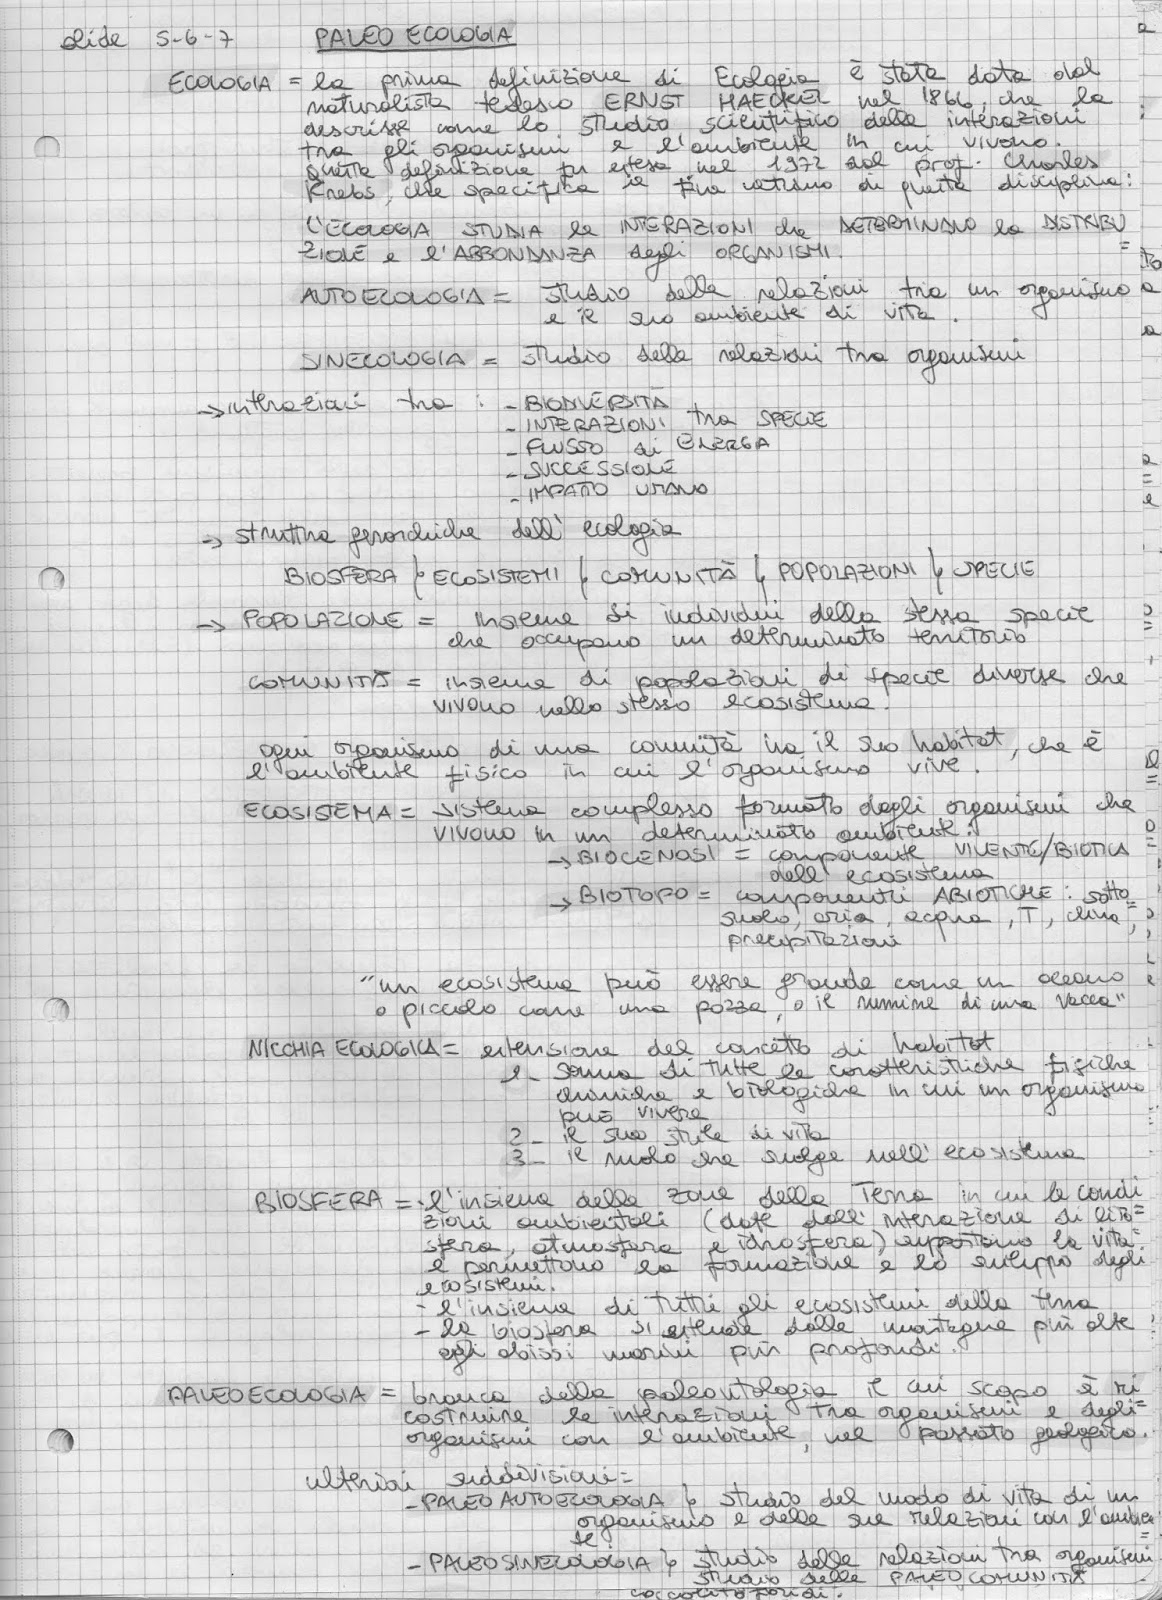 slide 5-6-7 PALEO ECOLOGIA
ECOLOGIA = la prima definizione di Ecologia è stata data dal
naturalista tedesco ERNST HAECKEL nel 1866, che la
descrisse come lo studio scientifico delle interazioni
tra gli organismi e l'ambiente in cui vivono.
Questa definizione fu estesa nel 1972 dal prof. Charles
Krebs, che specifica il fine ultimo di questa disciplina:
L'ECOLOGIA STUDIA le INTERAZIONI che DETERMINANO la DISTRIBU
ZIONE e l'ABBONDANZA degli ORGANISMI.
AUTOECOLOGIA = studio delle relazioni tra un organismo
e il suo ambiente di vita.
SINECOLOGIA = studio delle relazioni tra organismi
→ interazioni tra : - BIODIVERSITÀ
- INTERAZIONI tra SPECIE
- FLUSSO di ENERGIA
- SUCCESSIONE
- IMPATTO UMANO
→ struttura gerarchiche dell'ecologia
BIOSFERA ↳ ECOSISTEMI ↳ COMUNITÀ ↳ POPOLAZIONI ↳ SPECIE
→ POPOLAZIONE = insieme di individui della stessa specie
che occupano un determinato territorio
COMUNITÀ = insieme di popolazioni di specie diverse che
vivono nello stesso ecosistema.
ogni organismo di una comunità ha il suo habitat, che è
l'ambiente fisico in cui l'organismo vive.
ECOSISTEMA = sistema complesso formato dagli organismi che
vivono in un determinato ambiente:
→ BIOCENOSI = componente VIVENTE/BIOTICA
dell'ecosistema
→ BIOTOPO = componenti ABIOTICHE : sotto=
suolo, aria, acqua, T, clima,
precipitazioni
"un ecosistema può essere grande come un oceano
o piccolo come una pozza, o il rumine di una vacca"
NICCHIA ECOLOGICA = estensione del concetto di habitat
1- somma di tutte le caratteristiche fisiche
chimiche e biologiche in cui un organismo
può vivere
2- il suo stile di vita
3- il ruolo che svolge nell'ecosistema
BIOSFERA = - l'insieme delle zone della Terra in cui le condi
zioni ambientali (date dall'interazione di lito=
sfera, atmosfera e idrosfera) supportano la vita
e permettono la formazione e lo sviluppo degli
ecosistemi.
- l'insieme di tutti gli ecosistemi della terra
- la biosfera si estende dalle montagne più alte
agli abissi marini più profondi.
PALEOECOLOGIA = branca della paleontologia il cui scopo è ri
costruire le interazioni tra organismi e degli=
organismi con l'ambiente, nel passato geologico.
ulteriori suddivisioni =
- PALEOAUTOECOLOGIA ↳ studio del modo di vita di un
organismo e delle sue relazioni con l'ambien
te.
- PALEOSINECOLOGIA ↳ studio delle relazioni tra organismi
studio delle PALEOCOMUNITÀ